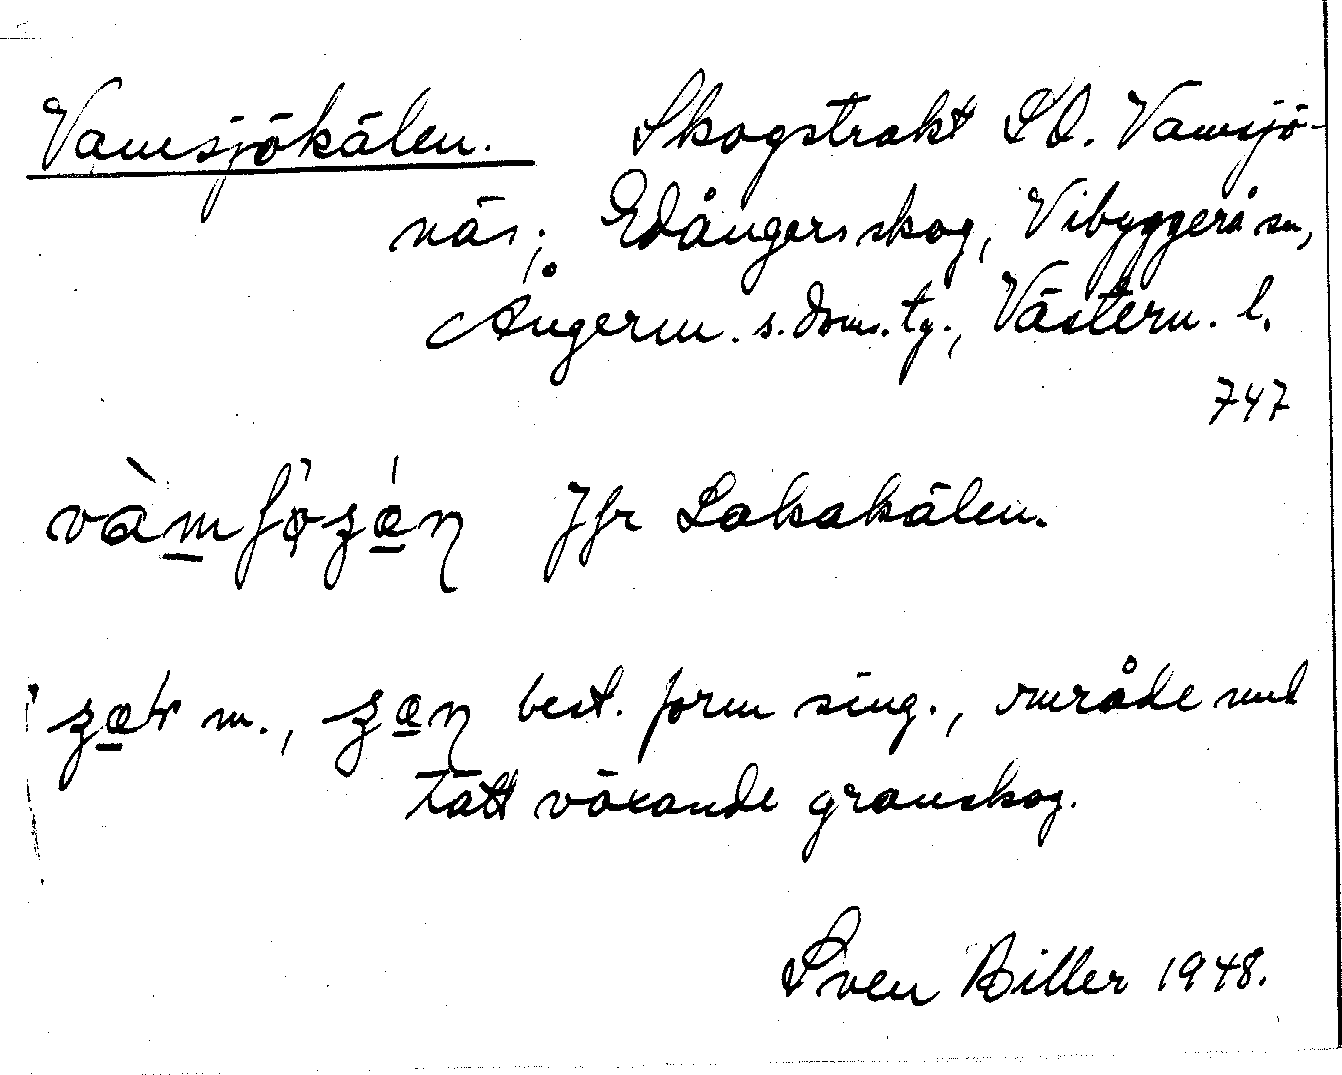 Vamsjökälen. Skogstrakt SO. Vamsjö-
näs, Edångersskog, Vibyggerå sn,
Ångerm. s. doms. tg., Västern. l.
747
Jfr Lakakälen.
m., best. form sing., område med
tätt växande granskog.
Sven Biller 1948.